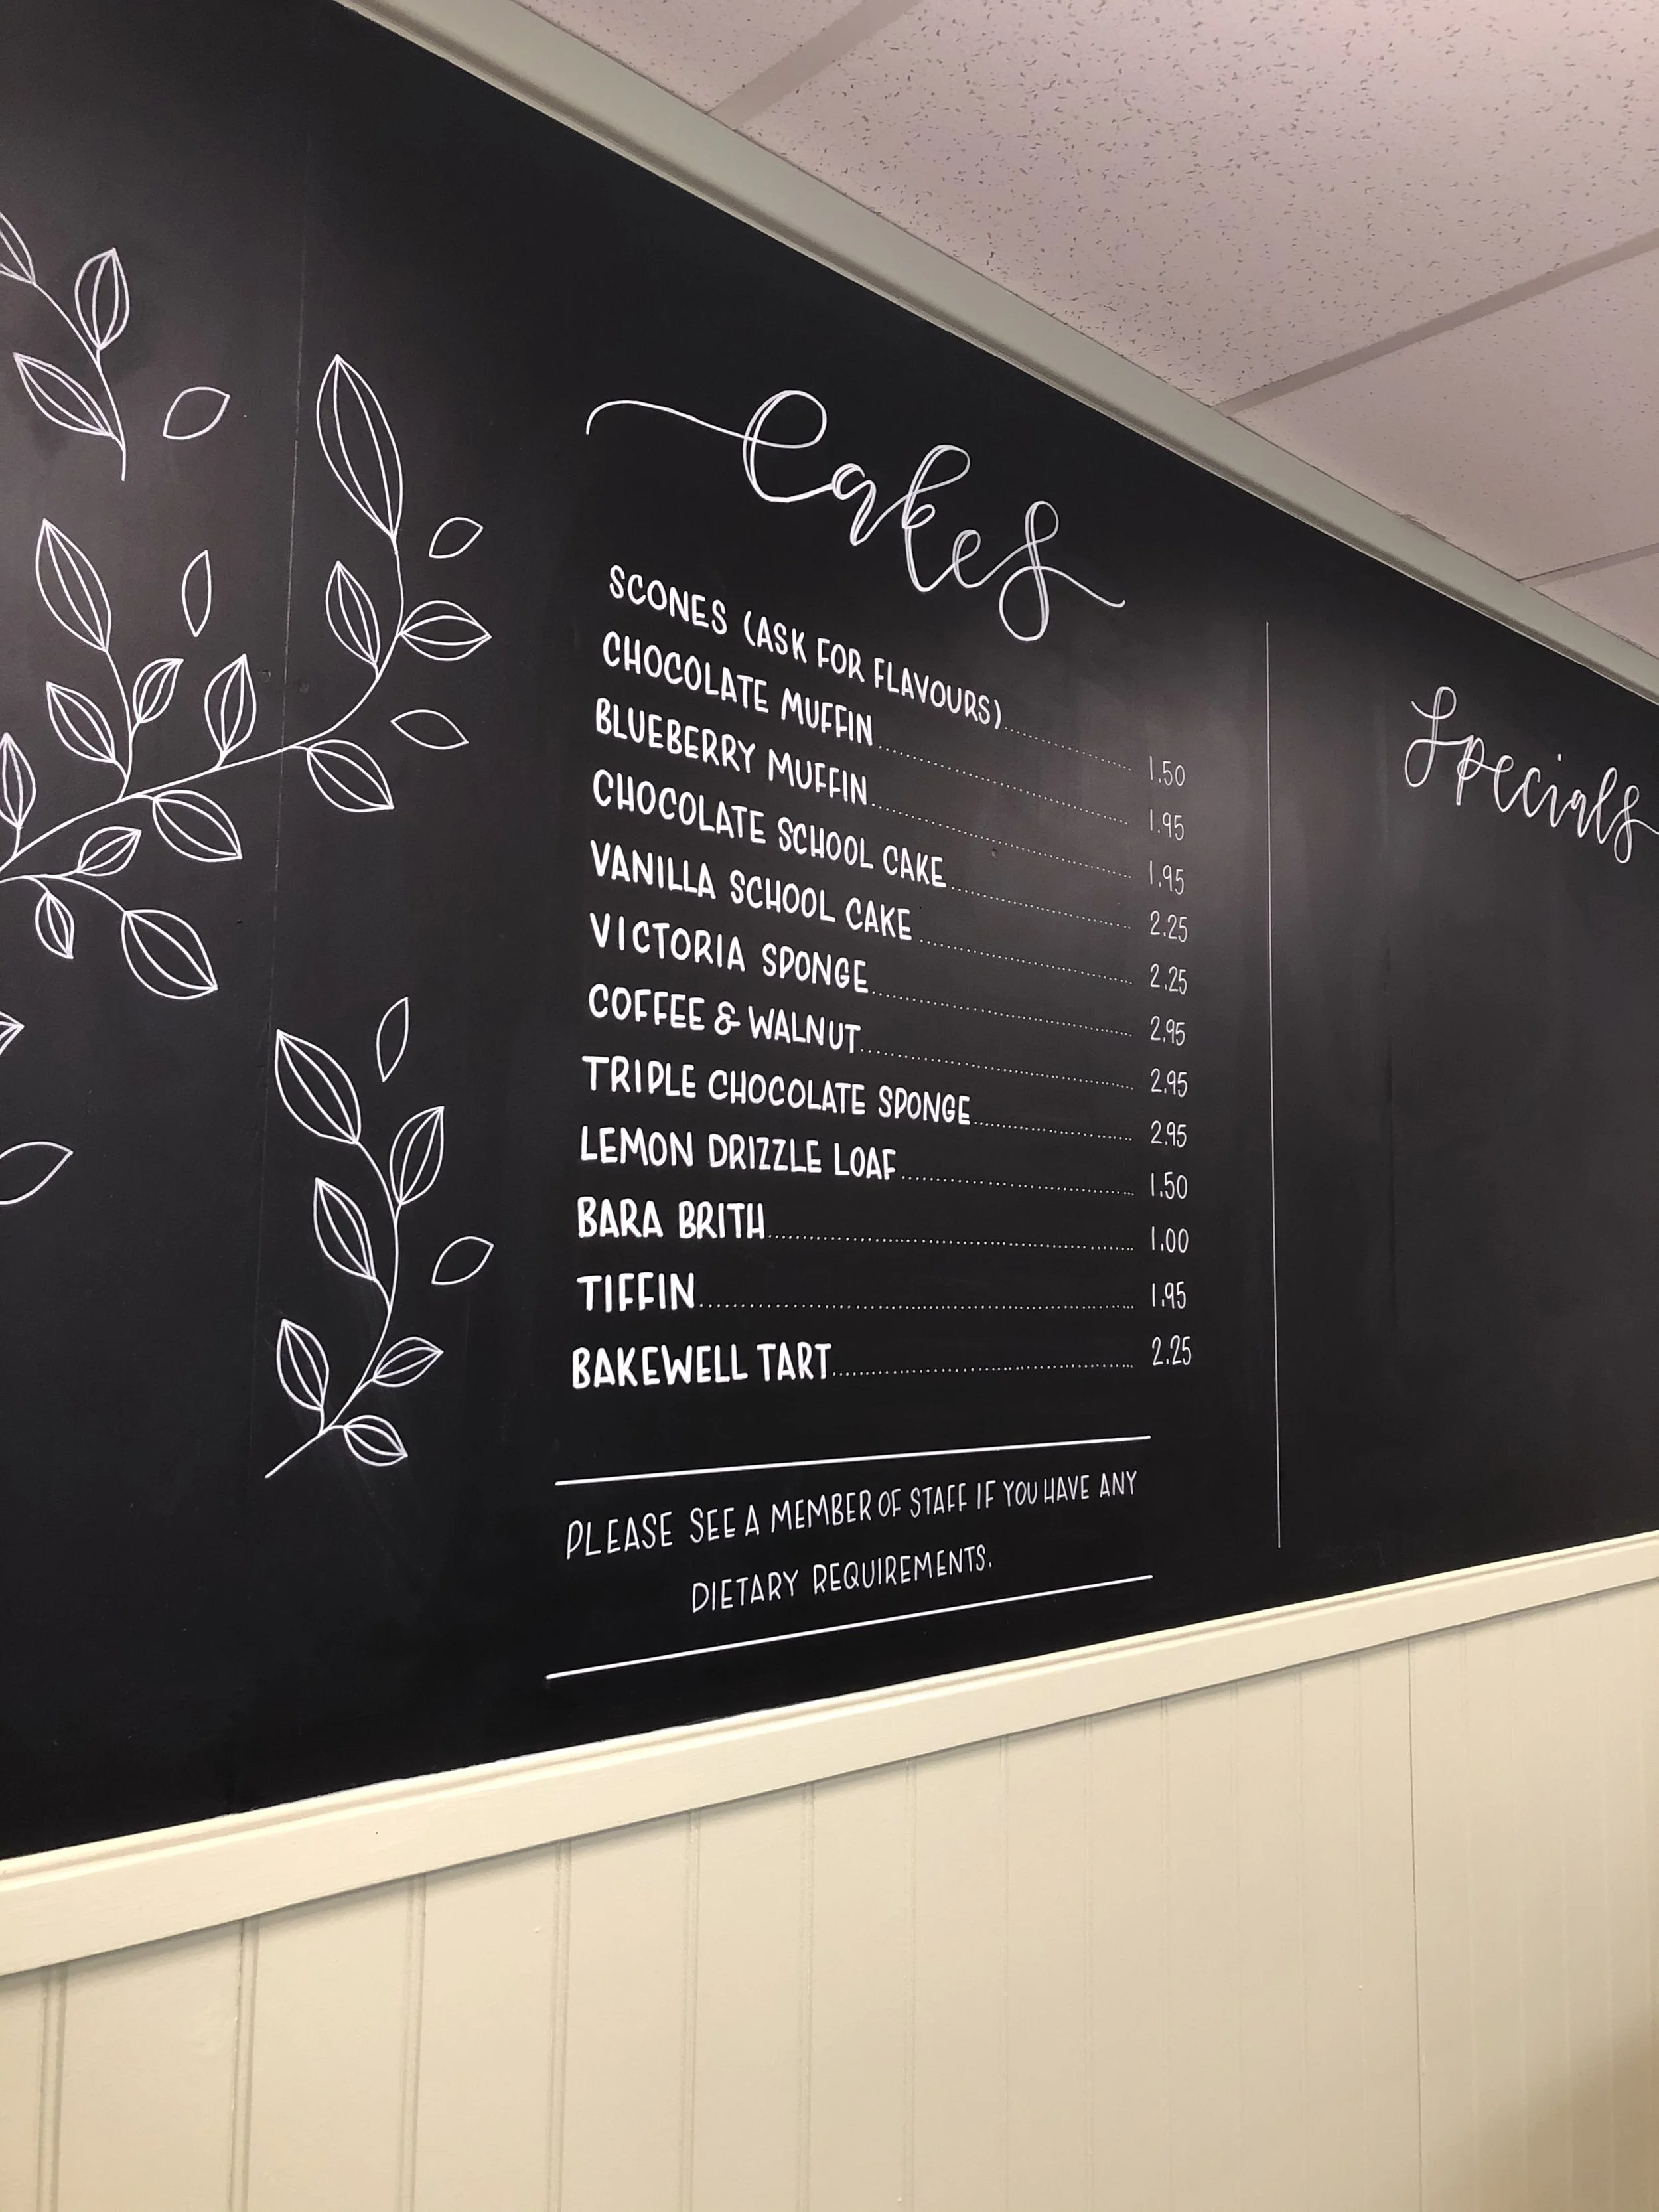 Cakes
SCONES (ASK FOR FLAVOURS) 1.50
CHOCOLATE MUFFIN 1.95
BLUEBERRY MUFFIN 1.95
CHOCOLATE SCHOOL CAKE 2.25
VANILLA SCHOOL CAKE 2.25
VICTORIA SPONGE 2.95
COFFEE & WALNUT 2.95
TRIPLE CHOCOLATE SPONGE 2.95
LEMON DRIZZLE LOAF 1.50
BARA BRITH 1.00
TIFFIN 1.95
BAKEWELL TART 2.25
PLEASE SEE A MEMBER OF STAFF IF YOU HAVE ANY
DIETARY REQUIREMENTS.
Specials